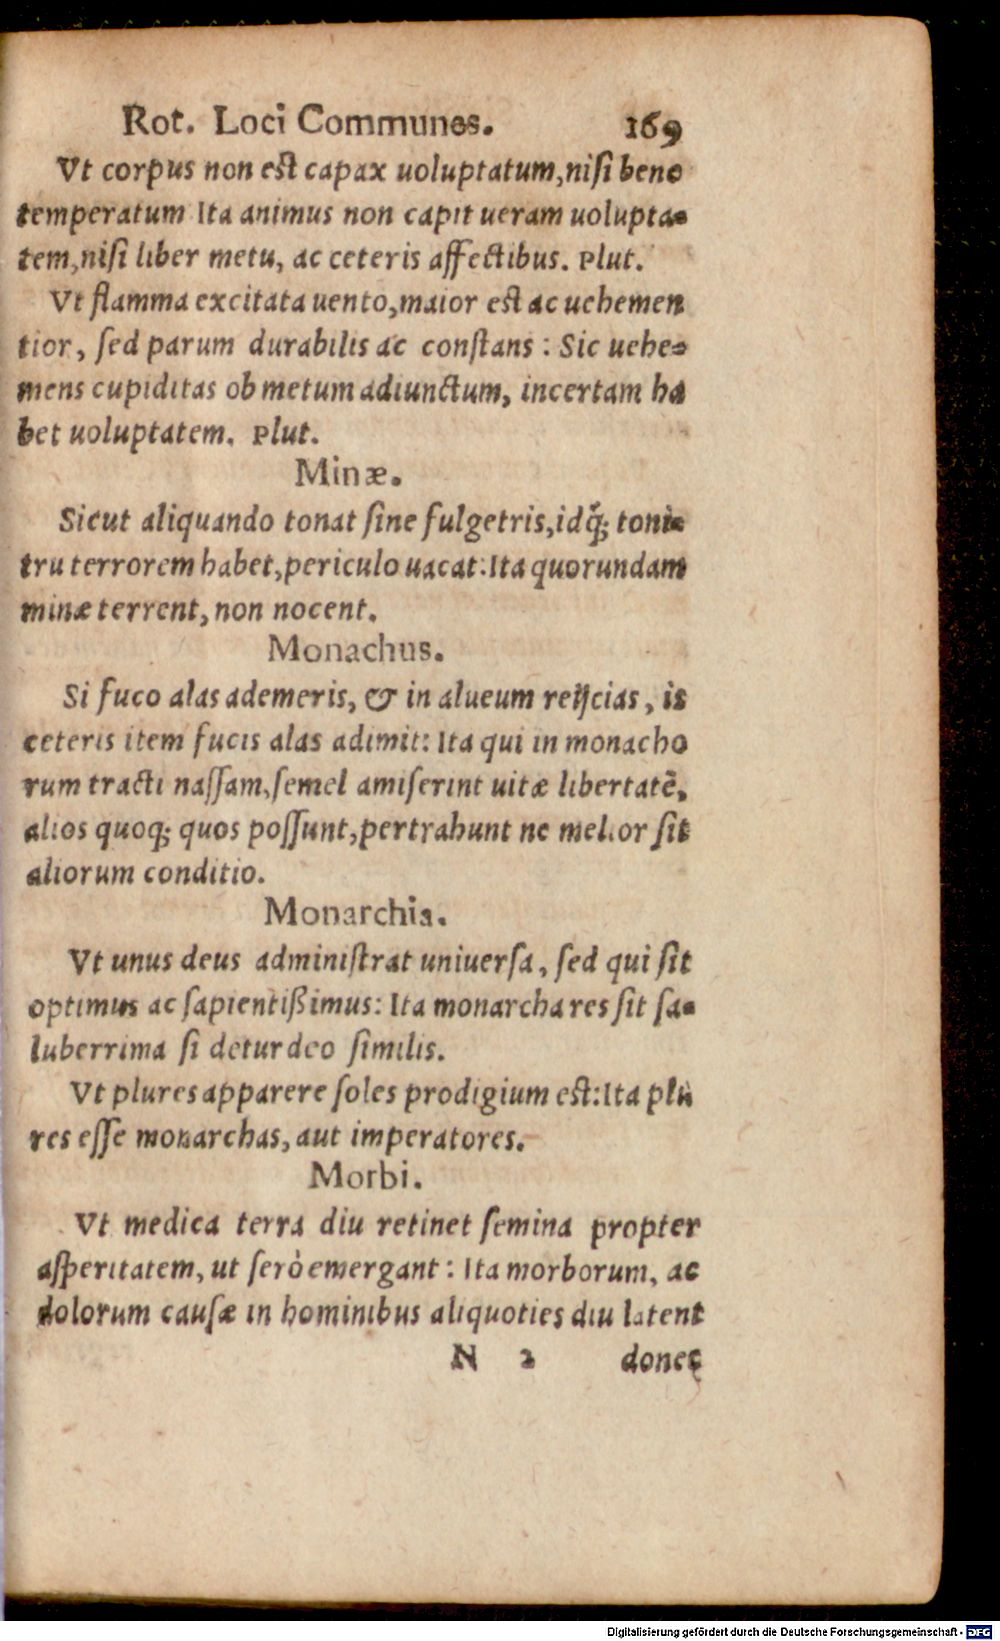 Rot. Loci Communes. 169
Vt corpus non est capax uoluptatum, nisi bene
temperatum Ita animus non capit ueram uolupta-
tem, nisi liber metu, ac ceteris affectibus. Plut.
Vt flamma excitata uento, maior est ac uehemen
tior, sed parum durabilis ac constans: Sic uehe-
mens cupiditas ob metum adiunctum, incertam ha
bet uoluptatem. Plut.
Minæ.
Sicut aliquando tonat sine fulgetris, idq́; toni-
tru terrorem habet, periculo uacat: Ita quorundam
minæ terrent, non nocent.
Monachus.
Si fuco alas ademeris, & in alueum reijcias, is
ceteris item fucis alas adimit: Ita qui in monacho
rum tracti nassam, semel amiserint uitæ libertatẽ,
alios quoq; quos possunt, pertrahunt ne melior sit
aliorum conditio.
Monarchia.
Vt unus deus administrat uniuersa, sed qui sit
optimus ac sapientißimus: Ita monarcha res sit sa-
luberrima si detur deo similis.
Vt plures apparere soles prodigium est: Ita plu
res esse monarchas, aut imperatores.
Morbi.
Vt medica terra diu retinet semina propter
asperitatem, ut serò emergant: Ita morborum, ac
dolorum causæ in hominibus aliquoties diu latent
N 2 donec
Digitalisierung gefördert durch die Deutsche Forschungsgemeinschaft - DFG